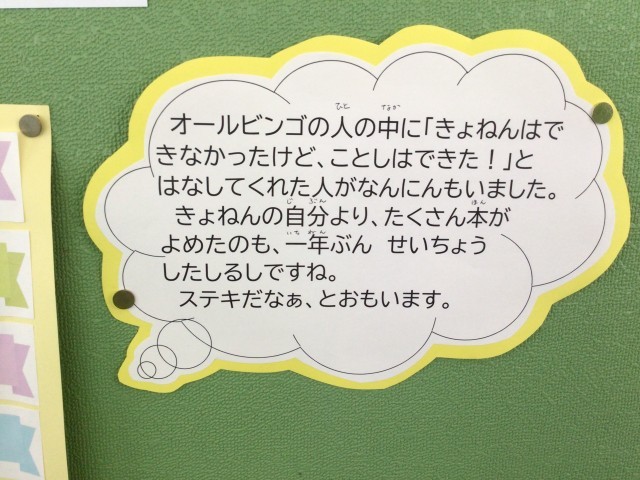 オールビンゴの人の中に「きょねんはで
きなかったけど、ことしはできた！」と
はなしてくれた人がなんにんもいました。
きょねんの自分より、たくさん本が
よめたのも、一年ぶん　せいちょう
したしるしですね。
ステキだなぁ、とおもいます。